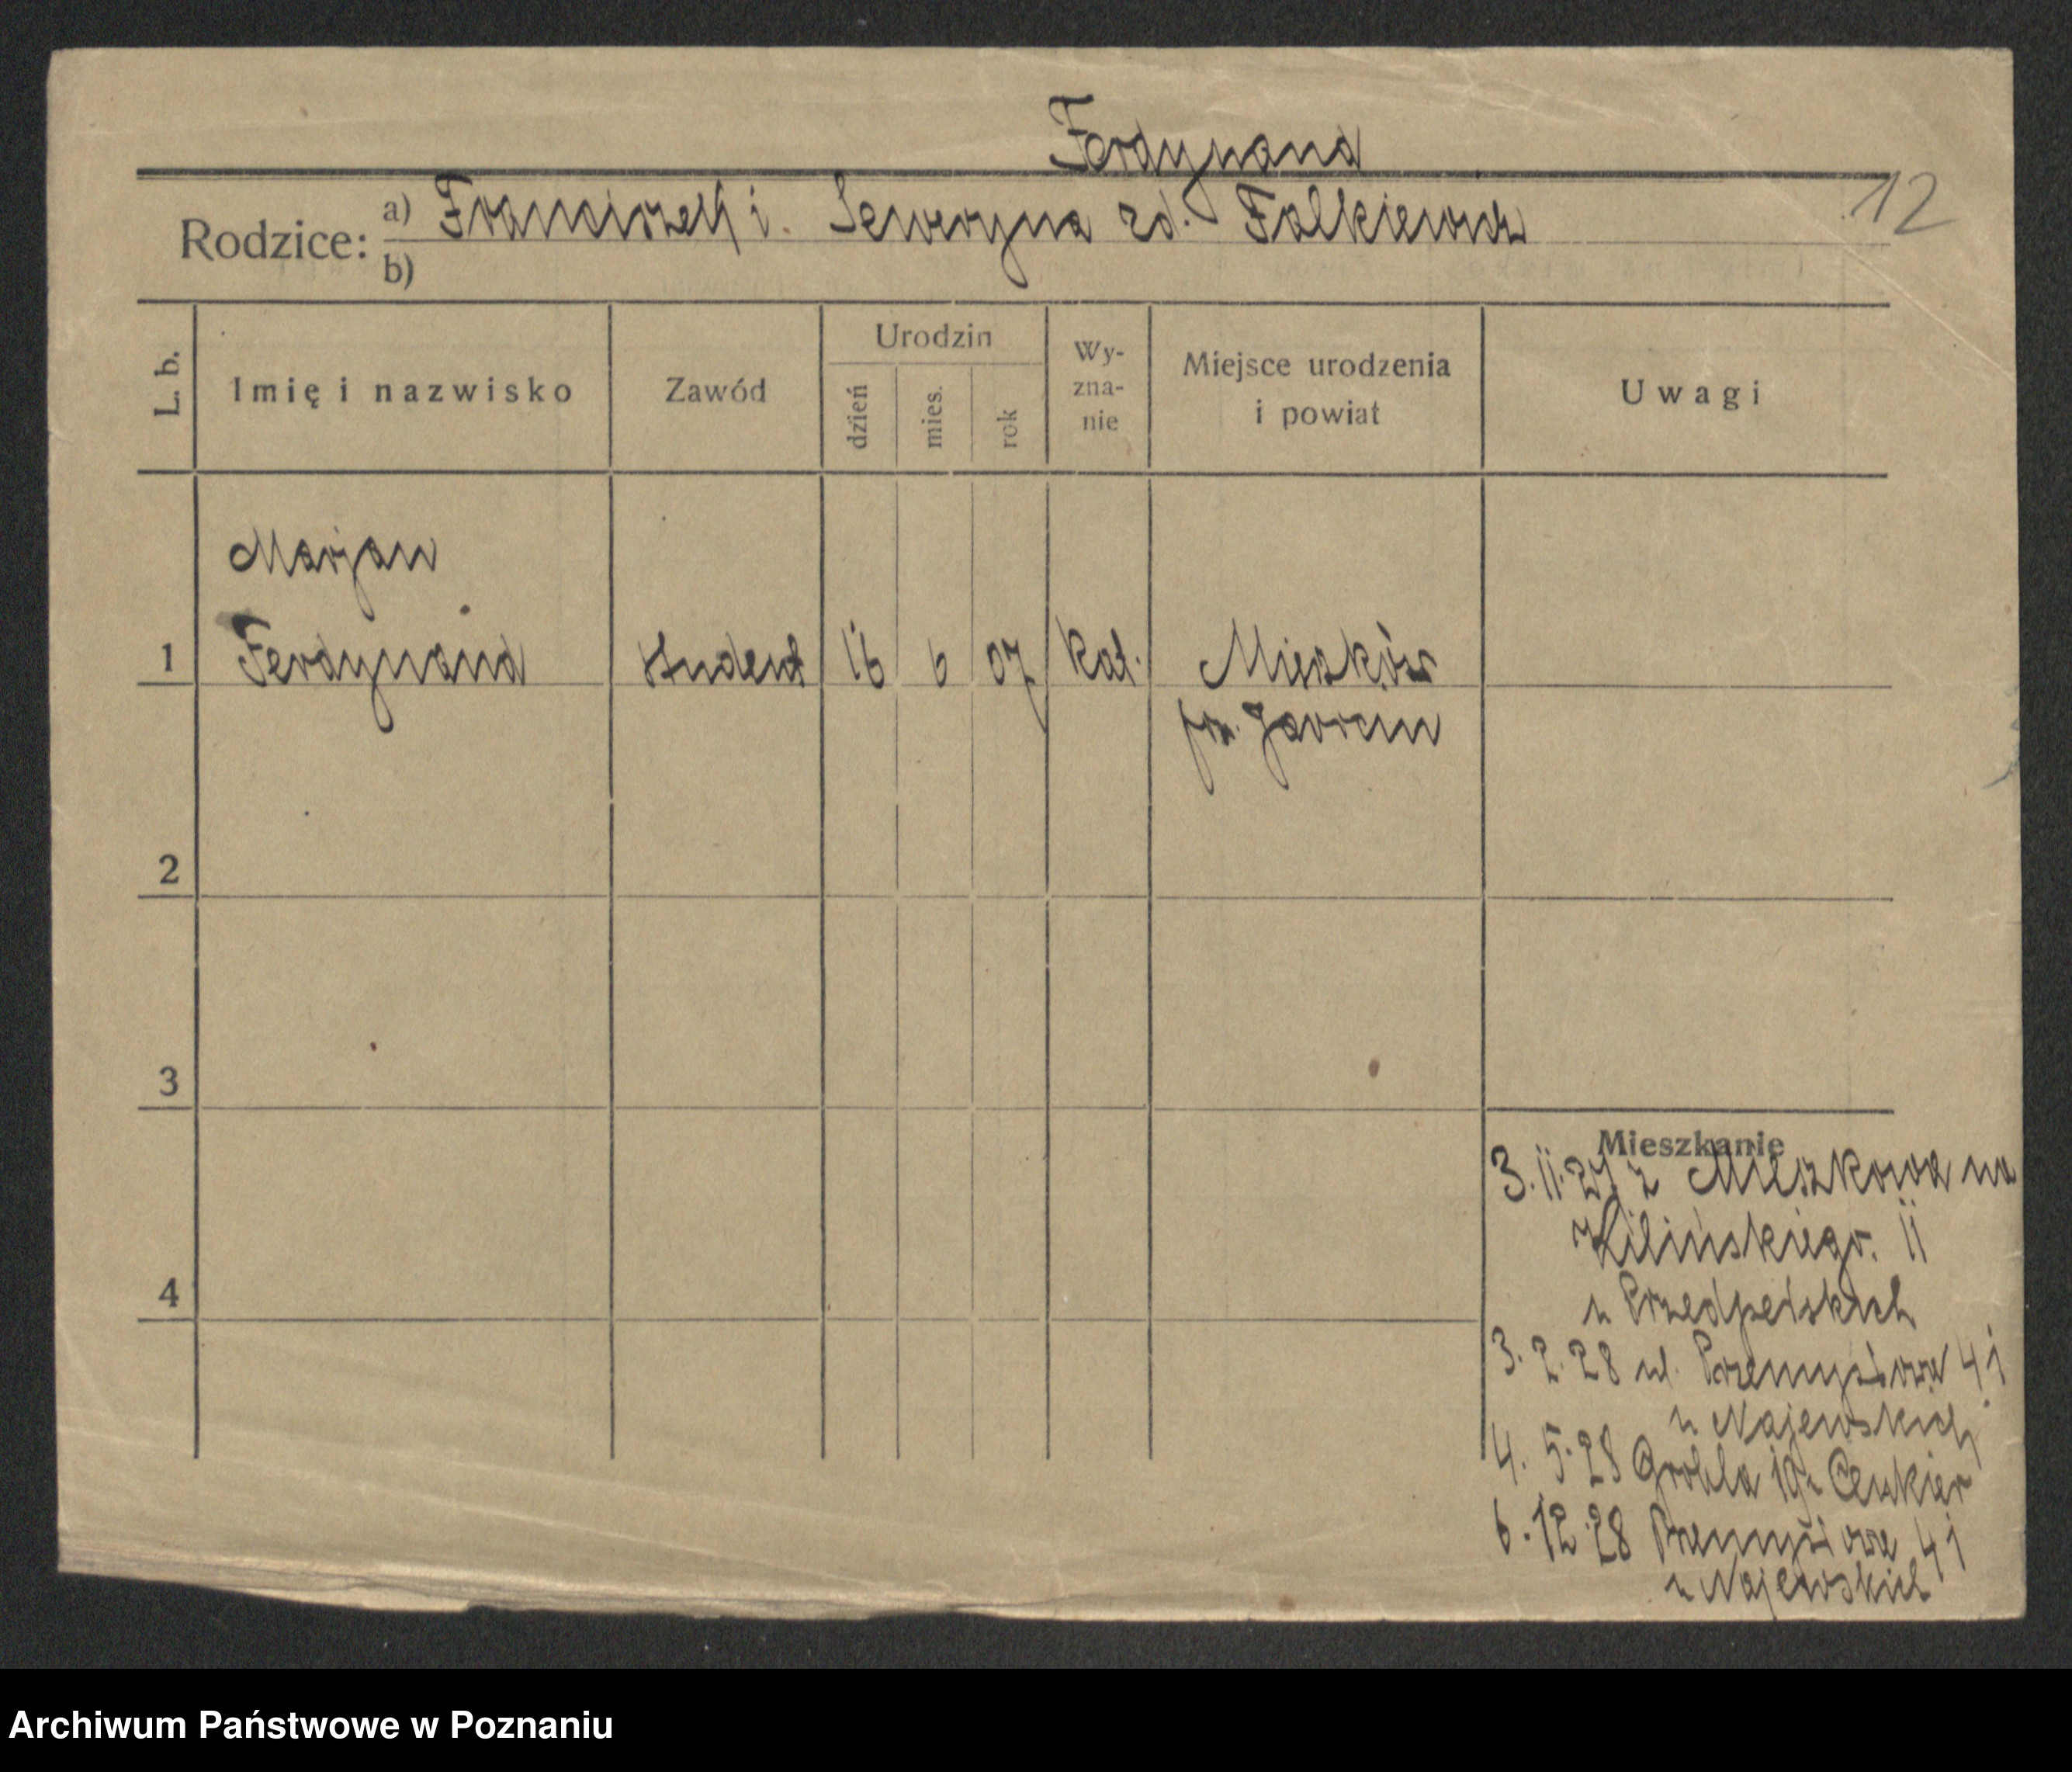 Ferdynand
12
Rodzice: a) Franciszek i Seweryna zd. Falkiewicz
b)
L. b. Imię i nazwisko Zawód Urodzin dzień mies. rok Wy-zna-nie Miejsce urodzenia i powiat Uwagi
Marjan
1 Ferdynand student 16 6 07 kat. Mieszków
pow. Jarocin
2
3
4
Mieszkanie
3. 11. 27 z Mieszkowa na
Kilińskiego 11
u Przedpełskich
3. 2. 28 ul. Przemysłowa 41
u Najewskich
4. 5. 28 Grobla 19 u Cenkier
6. 12. 28 Przemysłowa 41
u Najewskich
Archiwum Państwowe w Poznaniu